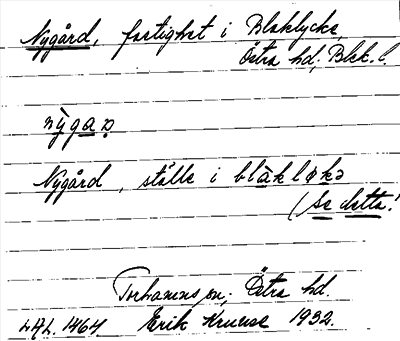 Nygård, fastighet i Blaklycke,
Östra hd; Blek. l.
nỳgaꞦ
Nygård, ställe i blàkløkə
(se detta!
Torhamns sn; Östra hd.
LAL. 1464 Erik Kruuse 1932.